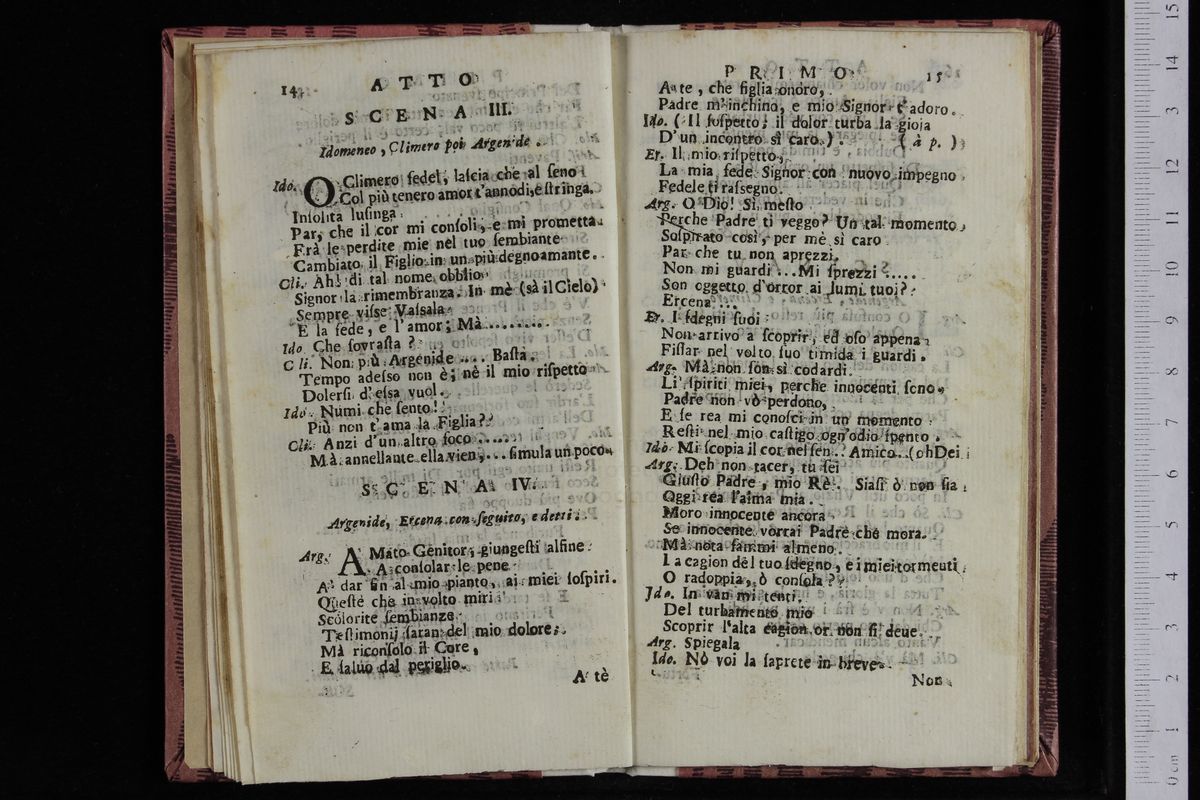 14
ATTO
SCENA III.
Idomeneo, Climero poi Argenide.
Ido. O Climero fedel, laſcia che al ſeno
Col più tenero amor t'annodi, e ſtringa.
Inſolita luſinga
Par, che il cor mi conſoli, e mi prometta
Frà le perdite mie nel tuo ſembiante
Cambiato il Figlio in un più degno amante.
Cli. Ah! di tal nome obblio
Signor la rimembranza. In mè (sà il Cielo)
Sempre viſse Vaſsala
E la fede, e l'amor; Mà.........
Ido Che ſovraſta?
Cli. Non più Argenide .... Baſta.
Tempo adeſso non è; nè il mio riſpetto
Dolerſi d'eſsa vuol.
Ido. Numi che ſento!
Più non t'ama la Figlia?
Cli. Anzi d'un altro foco .....
Mà annellante ella vien, ... ſimula un poco.
SCENA IV.
Argenide, Ercena con ſeguito, e detti.
Arg. AMato Genitor, giungeſti alfine
A conſolar le pene
A' dar fin al mio pianto, ai miei ſoſpiri.
Queſte che in volto miri
Scolorite ſembianze
Teſtimonij ſaran del mio dolore;
Mà riconſolo il Core,
E ſaluo dal periglio.
A tè
PRIMO
15
A te, che figlia onoro,
Padre m'inchino, e mio Signor t'adoro.
Ido. (Il ſoſpetto, il dolor turba la gioia
D'un incontro sì caro.) (à p.)
Er. Il mio riſpetto,
La mia fede Signor con nuovo impegno
Fedele ti raſsegno.
Arg. O Dio! Sì meſto
Perche Padre ti veggo? Un tal momento,
Soſpirato così, per mè sì caro
Par che tu non aprezzi.
Non mi guardi ... Mi ſprezzi .....
Son oggetto d'orror ai lumi tuoi?
Ercena ...
Er. I ſdegni ſuoi
Non arrivo a ſcoprir, ed oſo appena
Fiſſar nel volto ſuo timida i guardi.
Arg. Mà non ſon sì codardi
Li ſpiriti miei, perche innocenti ſeno,
Padre non vò perdono,
E ſe rea mi conoſci in un momento
Reſti nel mio caſtigo ogn'odio ſpento.
Ido Mi ſcopia il cor nel ſen.. Amico..(oh Dei
Arg. Deh non tacer, tu ſei
Giuſto Padre, mio Rè. Siaſi ò non ſia
Oggi rea l'alma mia.
Moro innocente ancora
Se innocente vorrai Padre che mora.
Mà nota fammi almeno
La cagion del tuo ſdegno, e i miei tormenti
O radoppia, ò conſola?
Ido. In van mi tenti.
Del turbamento mio
Scoprir l'alta cagion or non ſi deue.
Arg. Spiegala
Ido. Nò voi la ſaprete in breve
Non